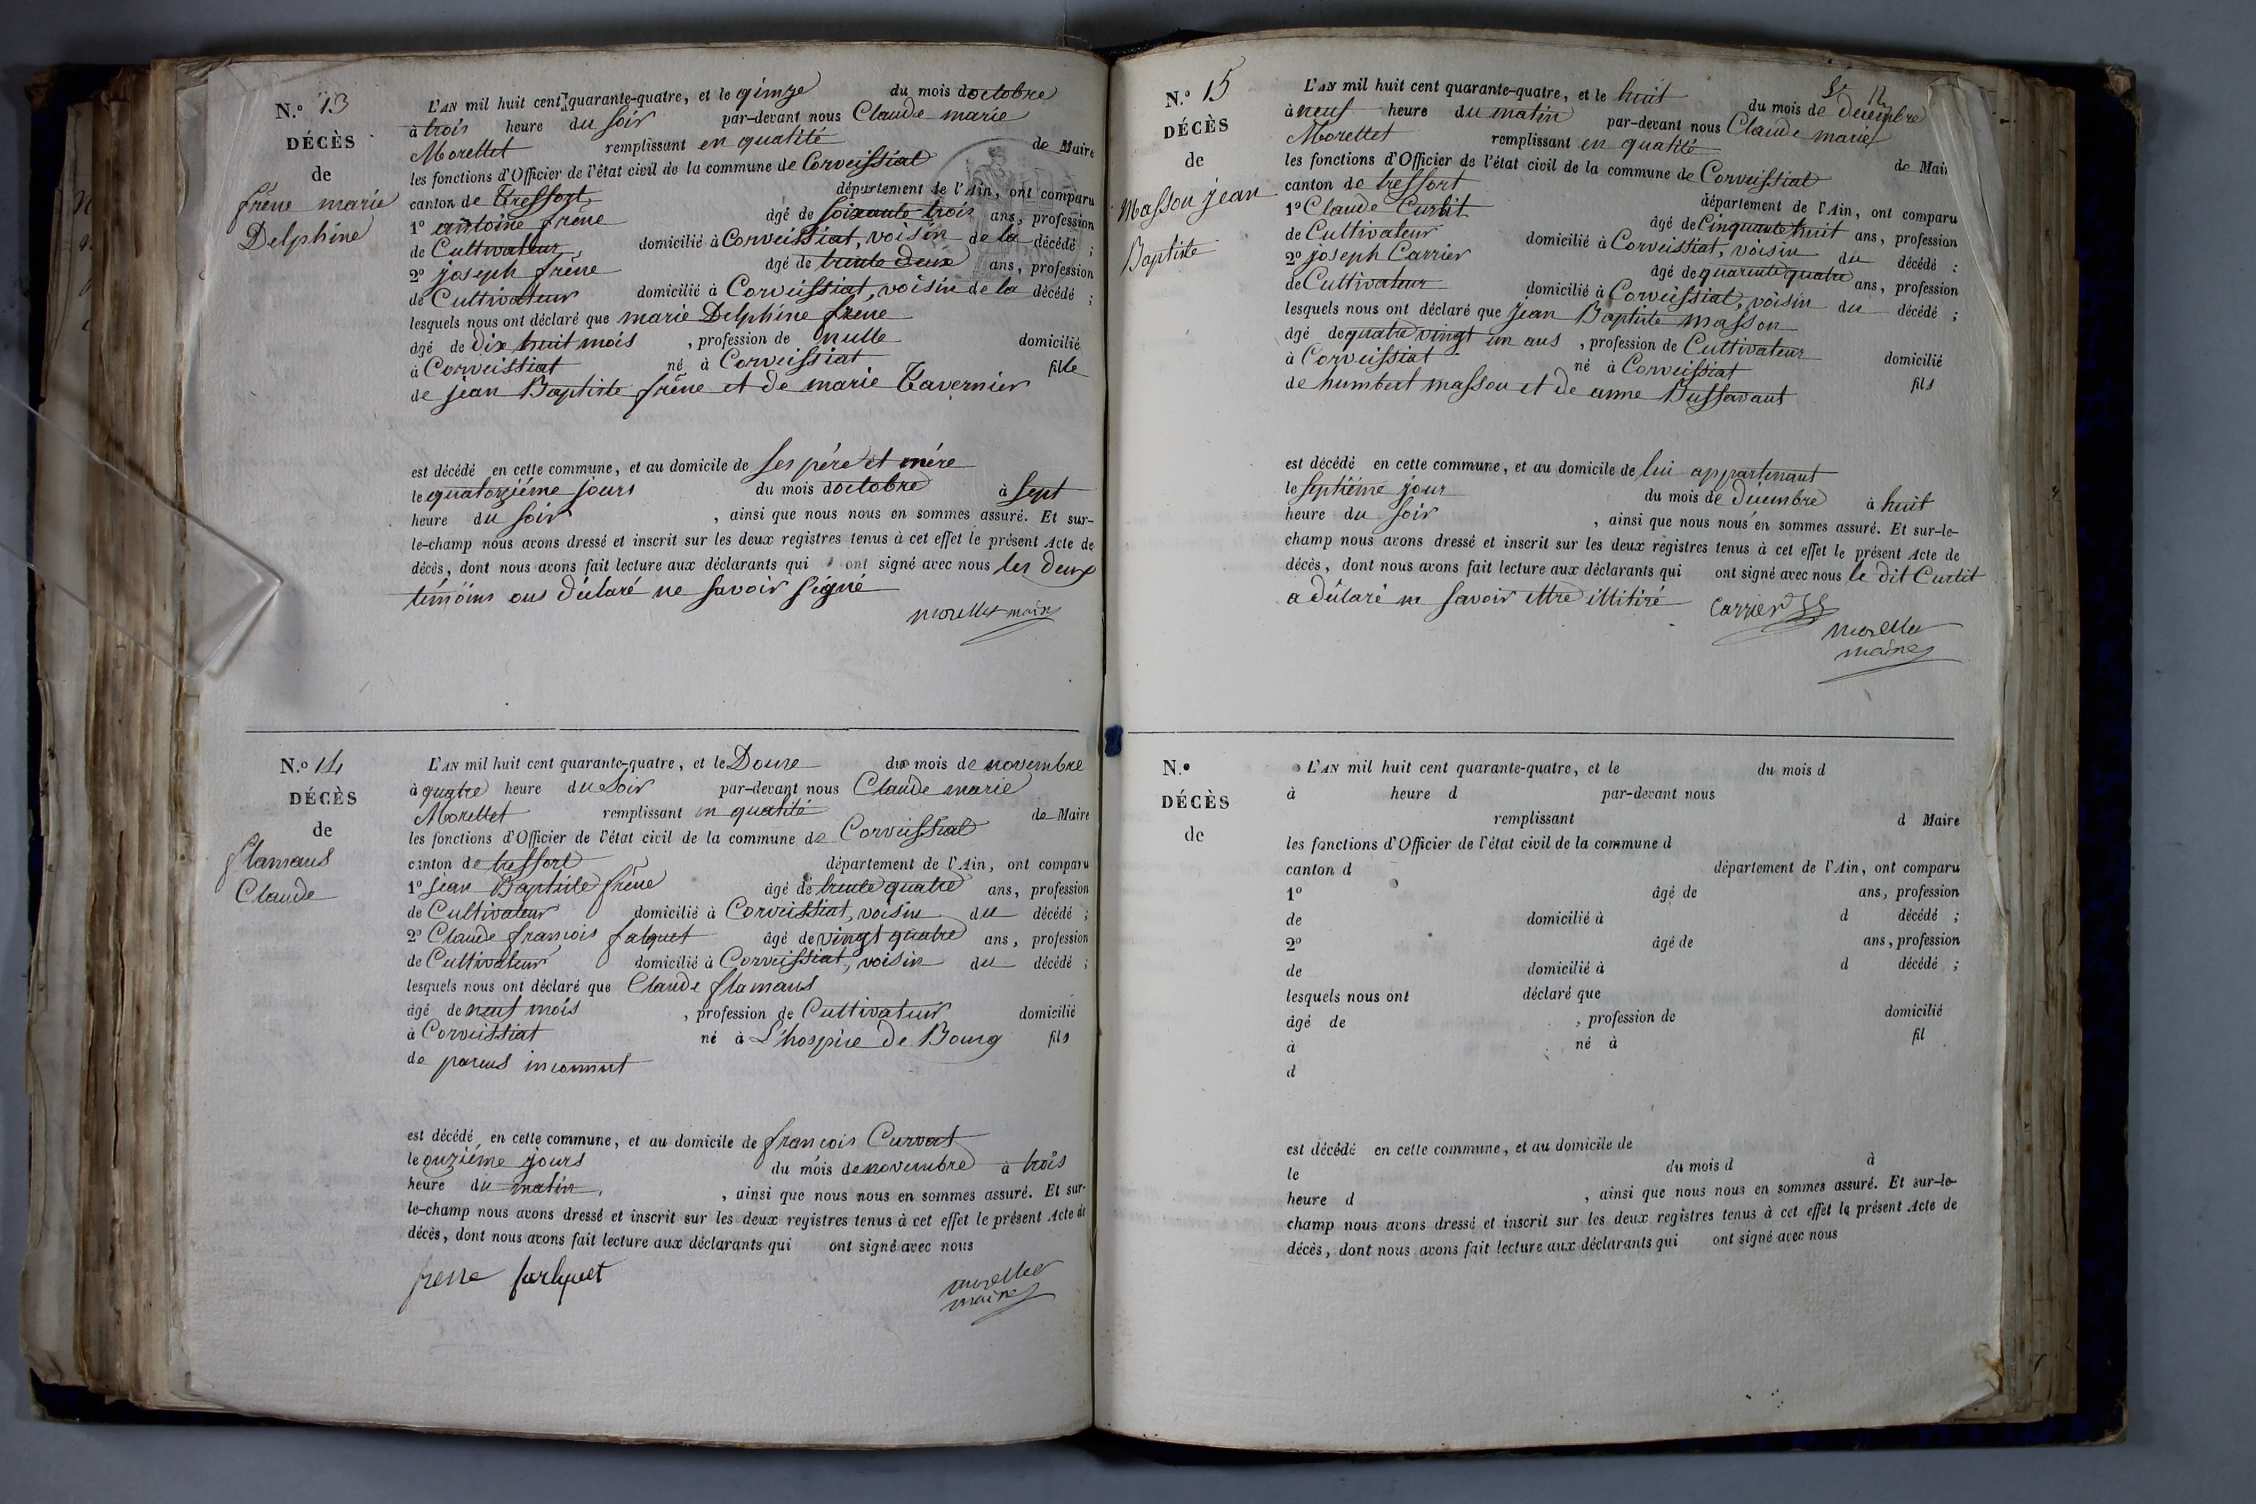 N.º 13
DÉCÈS
de
frêne marie
Delphine
L'AN mil huit cent quarante-quatre, et le qinze du mois doctobre
à trois heure du soir par-devant nous Claude marie
Morellet remplissant en qualité de Maire
les fonctions d'Officier de l'état civil de la commune de Corveissiat
canton de Treffort département de l'Ain, ont comparu
1º antoine frêne âgé de soixante trois ans, profession
de Cultivateur domicilié à Corveissiat, voisin de la décédé ;
2º joseph frêne âgé de trente deux ans, profession
de Cultivateur domicilié à Corveissiat, voisin de la décédé ;
lesquels nous ont déclaré que marie Delphine frene
âgé de dix huit mois , profession de nulle domicilié
à Corveissiat né à Corveissiat fille
de jean Baptiste frêne et de marie Tavernier
est décédé en cette commune, et au domicile de ses père et mére
le quatorziéme jours du mois doctobre à sept
heure du soir , ainsi que nous nous en sommes assuré. Et sur-
le-champ nous avons dressé et inscrit sur les deux registres tenus à cet effet le présent Acte de
décès, dont nous avons fait lecture aux déclarants qui ont signé avec nous les deux
témoins ons déclaré ne savoir signé
morellet maire
N.º 14
DÉCÈS
de
flamans
Claude
L'AN mil huit cent quarante-quatre, et le Douse du mois de novembre
à quatre heure du soir par-devant nous Claude marie
Morellet remplissant en qualité de Maire
les fonctions d'Officier de l'état civil de la commune de Corveissiat
canton de treffort département de l'Ain, ont comparu
1º jean Baptiste frêne âgé de trente quatre ans, profession
de Cultivateur domicilié à Corveissiat, voisin du décédé ;
2º Claude françois falquet âgé de vingt quatre ans, profession
de Cultivateur domicilié à Corveissiat, voisin du décédé ;
lesquels nous ont déclaré que Claude flamans
âgé de neuf mois , profession de Cultivateur domicilié
à Corveissiat né à L'hospice de Bourg fils
de parens inconnut
est décédé en cette commune, et au domicile de françois Curvat
le onziéme jours du mois de novembre à trois
heure du matin , ainsi que nous nous en sommes assuré. Et sur-
le-champ nous avons dressé et inscrit sur les deux registres tenus à cet effet le présent Acte de
décès, dont nous avons fait lecture aux déclarants qui ont signé avec nous
frene falquet
morellet
maire
N.º 15
DÉCÈS
de
Masson jean
Baptiste
L'AN mil huit cent quarante-quatre, et le huit du mois de décembre
à neuf heure du matin par-devant nous Claude marie
Morellet remplissant en qualité de Mair
les fonctions d'Officier de l'état civil de la commune de Corveissiat
canton de treffort département de l'Ain, ont comparu
1º Claude Curtit âgé de Cinquante huit ans, profession
de Cultivateur domicilié à Corveissiat, voisin du décédé ;
2º joseph Carrier âgé de quarente quatre ans, profession
de Cultivateur domicilié à Corveissiat, voisin du décédé ;
lesquels nous ont déclaré que jean Baptiste masson
âgé de quatre vingt un ans , profession de Cultivateur domicilié
à Corveissiat né à Corveissiat fils
de humbert masson et de anne Bussavant
est décédé en cette commune, et au domicile de lui appartenant
le septiéme jour du mois de décembre à huit
heure du soir , ainsi que nous nous en sommes assuré. Et sur-le-
champ nous avons dressé et inscrit sur les deux registres tenus à cet effet le présent Acte de
décès, dont nous avons fait lecture aux déclarants qui ont signé avec nous le dit Curtit
a déclaré ne savoir ettre illitiré Carrier
morellet
maire
N.º
DÉCÈS
de
L'AN mil huit cent quarante-quatre, et le du mois d
à heure d par-devant nous
remplissant d Maire
les fonctions d'Officier de l'état civil de la commune d
canton d département de l'Ain, ont comparu
1º âgé de ans, profession
de domicilié à d décédé ;
2º âgé de ans, profession
de domicilié à d décédé ;
lesquels nous ont déclaré que
âgé de , profession de domicilié
à né à fil
d
est décédé en cette commune, et au domicile de
le du mois d à
heure d , ainsi que nous nous en sommes assuré. Et sur-le-
champ nous avons dressé et inscrit sur les deux registres tenus à cet effet le présent Acte de
décès, dont nous avons fait lecture aux déclarants qui ont signé avec nous